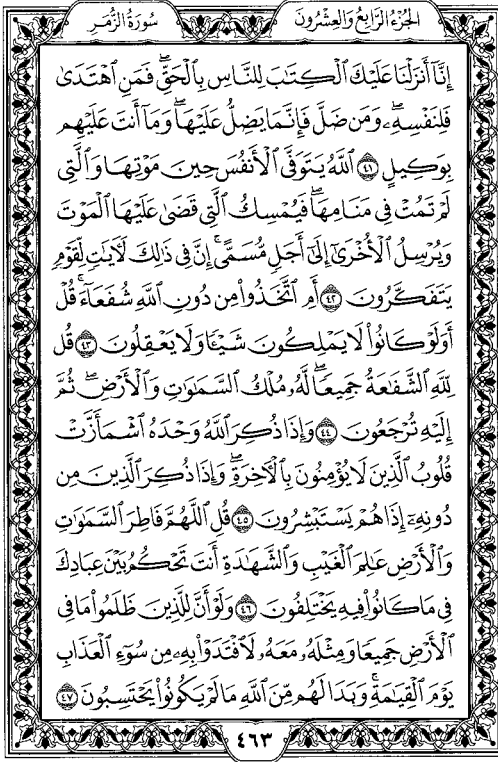 الجزء الرابع والعشرون
سورة الزمر
إِنَّآ أَنزَلْنَا عَلَيْكَ ٱلْكِتَٰبَ لِلنَّاسِ بِٱلْحَقِّ ۖ فَمَنِ ٱهْتَدَىٰ
فَلِنَفْسِهِۦ ۖ وَمَن ضَلَّ فَإِنَّمَا يَضِلُّ عَلَيْهَا ۖ وَمَآ أَنتَ عَلَيْهِم
بِوَكِيلٍ ٤١ ٱللَّهُ يَتَوَفَّى ٱلْأَنفُسَ حِينَ مَوْتِهَا وَٱلَّتِى
لَمْ تَمُتْ فِى مَنَامِهَا ۖ فَيُمْسِكُ ٱلَّتِى قَضَىٰ عَلَيْهَا ٱلْمَوْتَ
وَيُرْسِلُ ٱلْأُخْرَىٰٓ إِلَىٰٓ أَجَلٍ مُّسَمًّى ۚ إِنَّ فِى ذَٰلِكَ لَءَايَٰتٍ لِّقَوْمٍ
يَتَفَكَّرُونَ ٤٢ أَمِ ٱتَّخَذُوا۟ مِن دُونِ ٱللَّهِ شُفَعَآءَ ۚ قُلْ
أَوَلَوْ كَانُوا۟ لَا يَمْلِكُونَ شَيْـًٔا وَلَا يَعْقِلُونَ ٤٣ قُل
لِّلَّهِ ٱلشَّفَٰعَةُ جَمِيعًا ۖ لَّهُۥ مُلْكُ ٱلسَّمَٰوَٰتِ وَٱلْأَرْضِ ۖ ثُمَّ
إِلَيْهِ تُرْجَعُونَ ٤٤ وَإِذَا ذُكِرَ ٱللَّهُ وَحْدَهُ ٱشْمَأَزَّتْ
قُلُوبُ ٱلَّذِينَ لَا يُؤْمِنُونَ بِٱلْءَاخِرَةِ ۖ وَإِذَا ذُكِرَ ٱلَّذِينَ مِن
دُونِهِۦٓ إِذَا هُمْ يَسْتَبْشِرُونَ ٤٥ قُلِ ٱللَّهُمَّ فَاطِرَ ٱلسَّمَٰوَٰتِ
وَٱلْأَرْضِ عَٰلِمَ ٱلْغَيْبِ وَٱلشَّهَٰدَةِ أَنتَ تَحْكُمُ بَيْنَ عِبَادِكَ
فِى مَا كَانُوا۟ فِيهِ يَخْتَلِفُونَ ٤٦ وَلَوْ أَنَّ لِلَّذِينَ ظَلَمُوا۟ مَا فِى
ٱلْأَرْضِ جَمِيعًا وَمِثْلَهُۥ مَعَهُۥ لَٱفْتَدَوْا۟ بِهِۦ مِن سُوٓءِ ٱلْعَذَابِ
يَوْمَ ٱلْقِيَٰمَةِ ۚ وَبَدَا لَهُم مِّنَ ٱللَّهِ مَا لَمْ يَكُونُوا۟ يَحْتَسِبُونَ ٤٧
٤٦٣